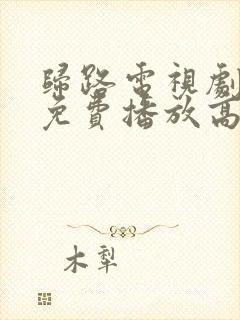 歸路電視劇
免費播放高
木犁